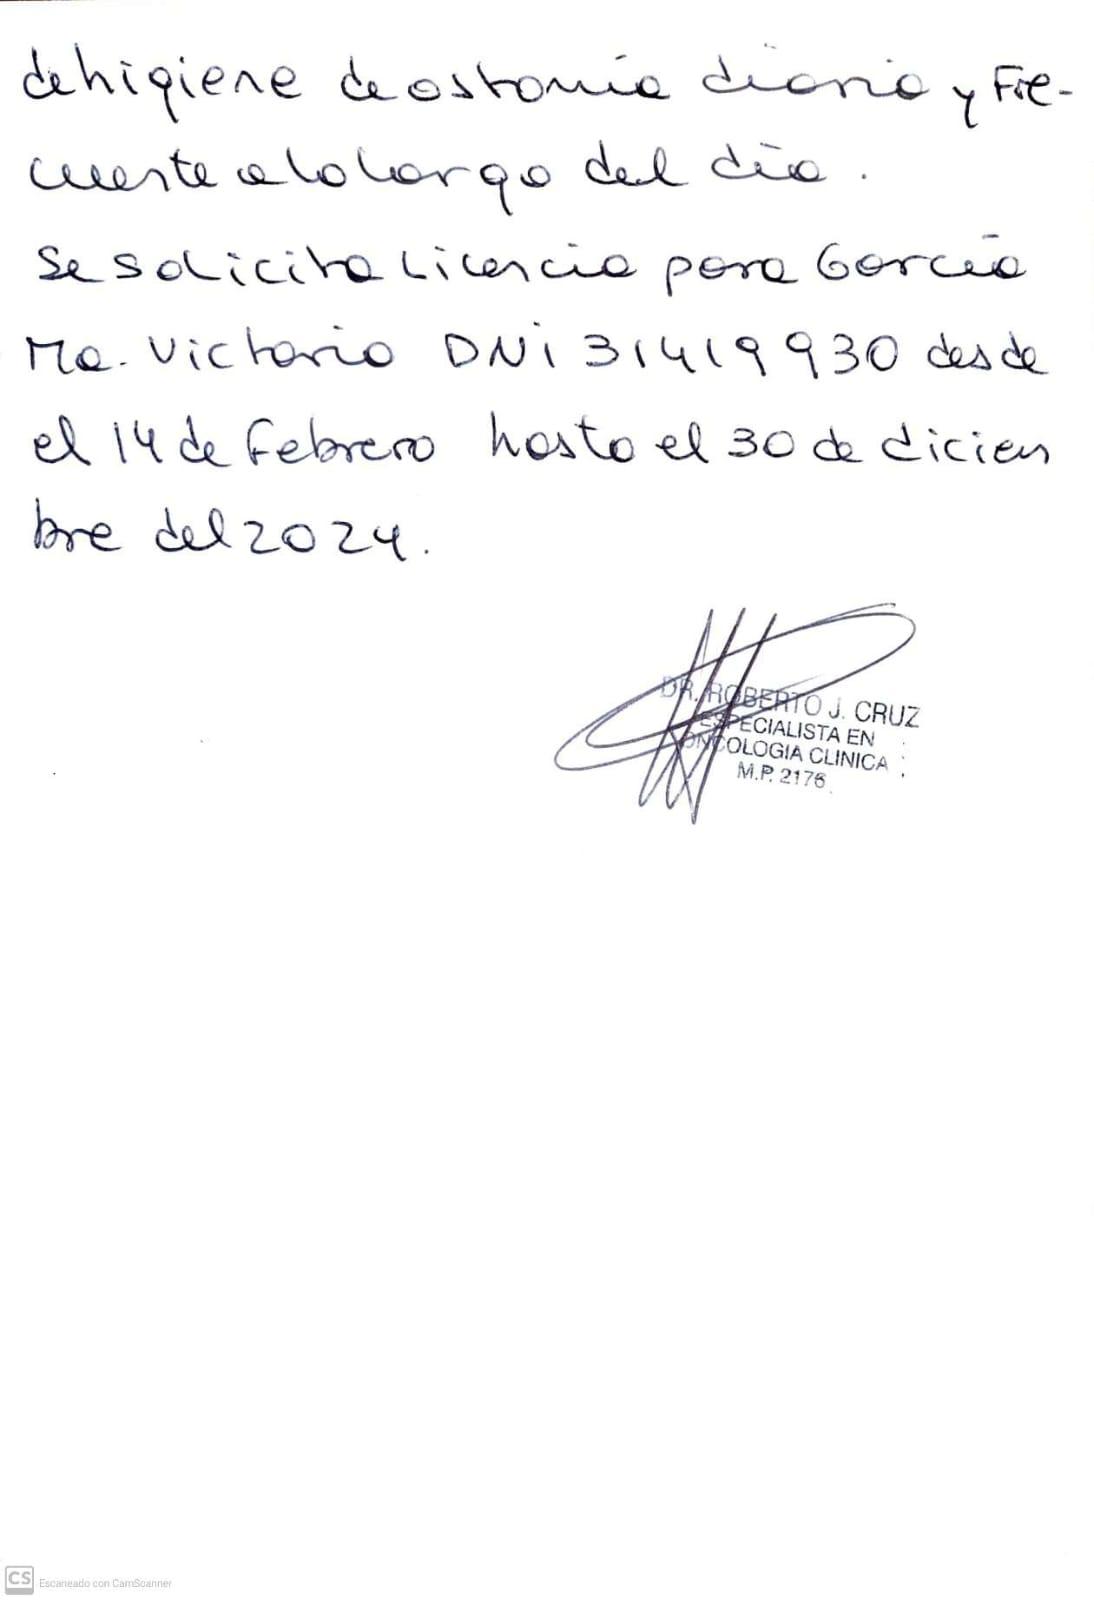 de higiene de ostomía diaria y Fre-
cuente a lo largo del día.
Se solicita Licencia para García
Ma. Victoria DNi 31419930 desde
el 14 de Febrero hasta el 30 de diciem
bre del 2024.
DR. ROBERTO J. CRUZ
ESPECIALISTA EN
ONCOLOGIA CLINICA
M.P. 2176
CS Escaneado con CamScanner